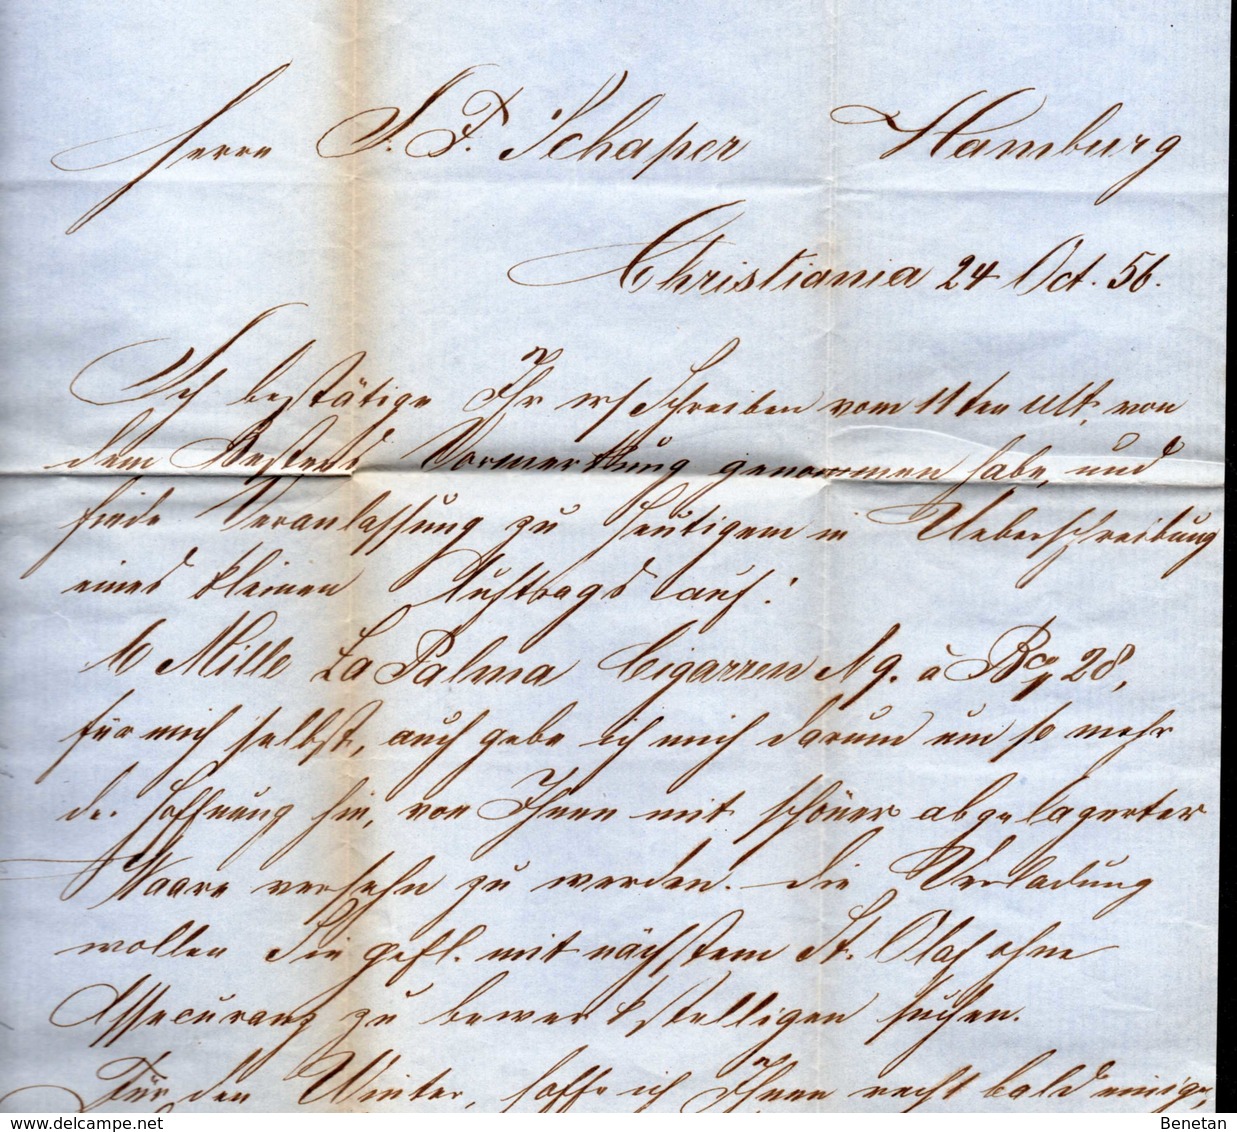 Herrn S. F. Schaper Hamburg
Christiania 24 Oct. 56.
Ich bestätige Ihr Schreiben vom 11ten ult, von
dem bestens Vormerkung genommen habe, und
finde Veranlassung zu Heutigem in Ueberschreibung
eines kleinen Auftrags auf:
Mille La Palma Cigarren à 28,
für mich selbst, auch gebe ich mich darum um so mehr
der Hoffnung hin, von Ihnen mit schöner abgelagerter
Waare versehn zu werden. Die Verladung
wollen Sie gefl. mit nächstem St. Olaf ohne
Assecuranz zu bewerkstelligen suchen.
Für den Winter, hoffe ich Ihnen recht bald einige
Benetan
delcampe.net